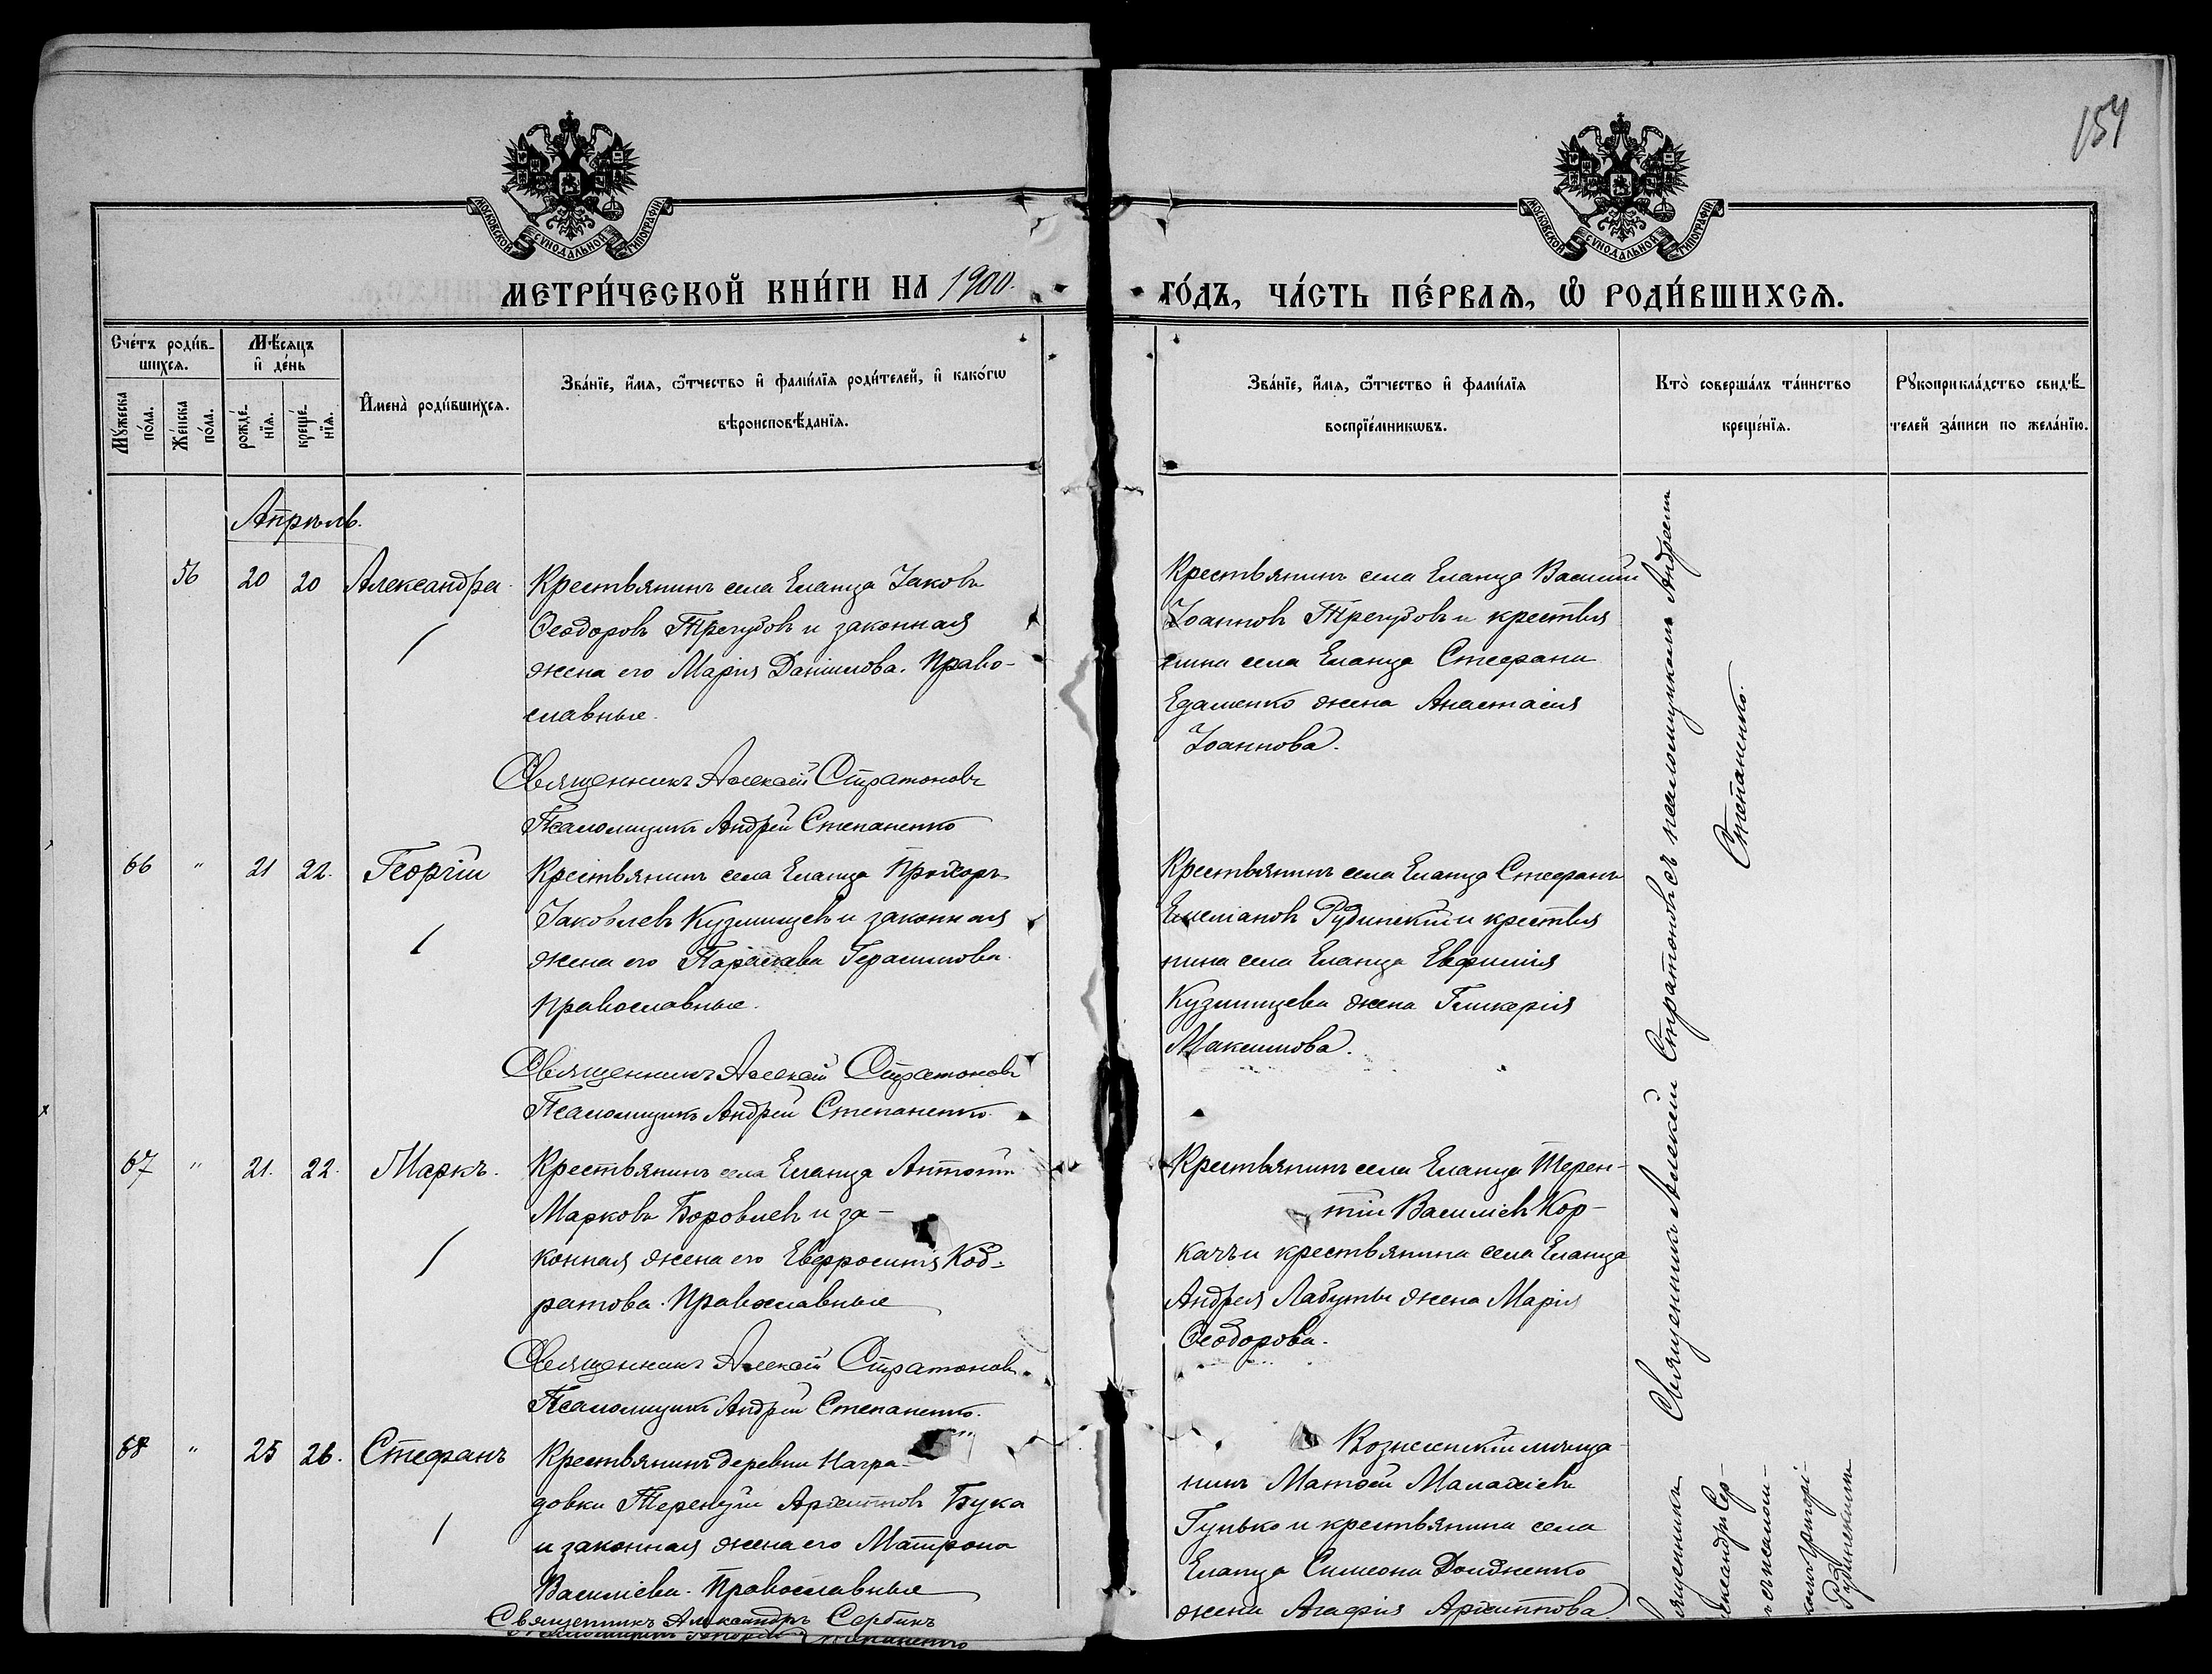 154
МОСКОВСКОЙ СѴНОДАЛЬНОЙ ТИПОГРАФІИ
МОСКОВСКОЙ СѴНОДАЛЬНОЙ ТИПОГРАФІИ
МЕТРИ́ЧЕСКОЙ КНИ́ГИ НА 1900.
ГО́ДЪ, ЧА́СТЬ ПЕ́РВАѦ, Ѽ РОДИ́ВШИХСѦ.
Сче́тъ роди́в-
шихсѧ.
Мѣ́сяцъ
и҆ де́нь
Мꙋ́жеска
по́ла.
Же́нска
по́ла.
рожде́-
нїѧ.
креще́-
нїѧ.
И҆мена̀ роди́вшихсѧ.
Зва́нїе, и҆́мѧ, ѿ́тчество и҆ фами́лїѧ роди́телей, и҆ како́гѡ
вѣроисповѣ́данїѧ.
Зва́нїе, и҆́мѧ, ѿ́тчество и҆ фами́лїѧ
воспрїе́мникѡвъ.
Кто̀ соверша́лъ та́инство
креще́нїѧ.
Рꙋкоприкла́дство свидѣ́-
телей за́писи по жела́нїю.
Апрѣль.
56 20 20 Александра
Крестьянинъ села Еланца Іаковъ
Ѳеодоровъ Трегубовъ и законная
жена его Марія Даніилова. Право-
славные.
Священникъ Алексій Стратоновъ
Псаломщикъ Андрей Степаненко
Крестьянинъ села Еланца Василій
Іоанновъ Трегубовъ и крестья
нина села Еланца Стефана
жена Анастасія
Іоаннова.
66 " 21 22. Георгій
Крестьянинъ села Еланца Прохоръ
Іаковлевъ Кузмищевъ и законная
жена его Параскева Герасимова.
Православные.
Священникъ Алексій Стратоновъ
Псаломщикъ Андрей Степаненко.
Крестьянинъ села Еланца Стефанъ
Емеліановъ Рудинскій и крестья
нина села Еланца Евфимія
Кузмищева жена Гликерія
Максимова.
67 " 21. 22. Маркъ.
Крестьянинъ села Еланца Антоній
Марковъ Боровлевъ и за-
конная жена его Евфросинія Код-
ратова. Православные
Священникъ Алексій Стратоновъ.
Псаломщикъ Андрей Степаненко.
Крестьянинъ села Еланца Терен-
тій Василіевъ Кор-
качъ и крестьянина села Еланца
Андрея Лабуты жена Марія
Ѳеодорова.
68 " 25 26. Стефанъ
Крестьянинъ деревни Награ-
довки Терентій Архиповъ Бука
и законная жена его Матрона
Василіева. Православные
Священникъ Александръ Сербинъ
Псаломщикъ Андрей Степаненко
Вознесенскій мѣща-
нинъ Матѳей Малахіевъ
Гунько и крестьянина села
Еланца Симеона Долженко
жена Агафія Архиппова
Священникъ Алексій Стратоновъ съ псаломщикомъ Андреемъ
Степаненко.